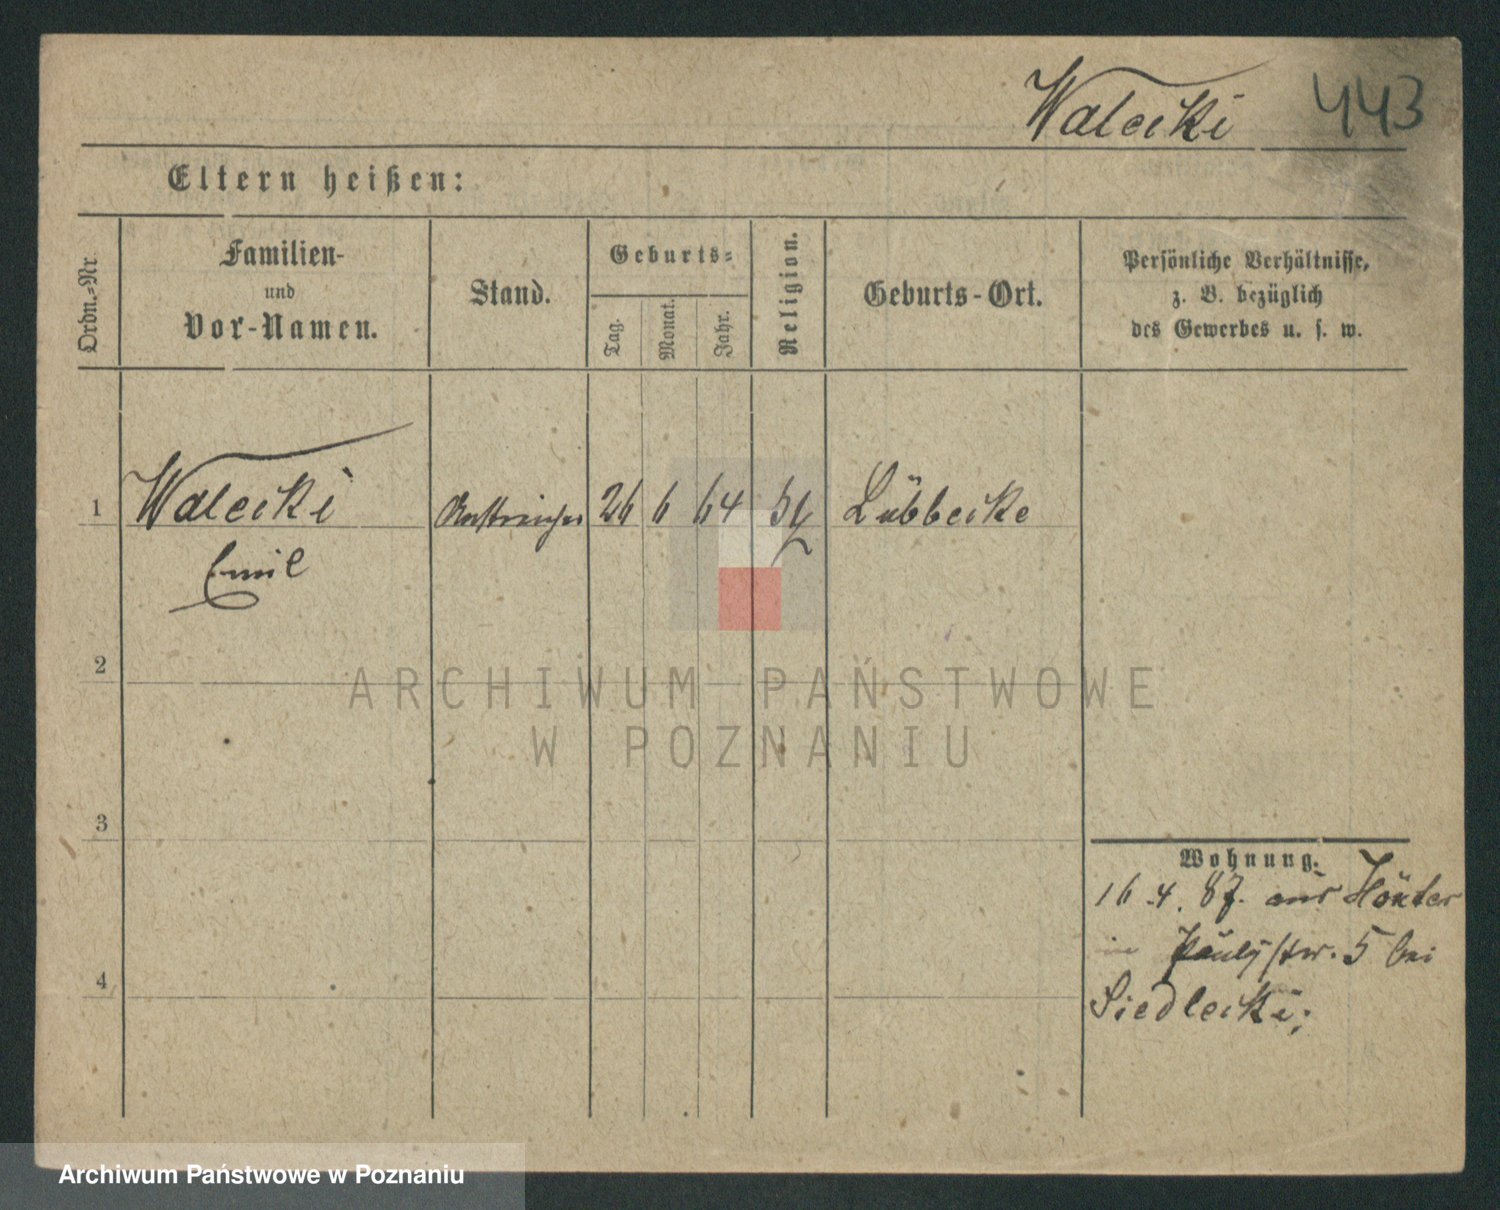 Walecki 443
Eltern heißen:
Ordn.-Nr.
Familien-
und
Vor-Namen.
Stand.
Geburts-
Tag.
Monat.
Jahr.
Religion.
Geburts-Ort.
Persönliche Verhältnisse,
z. B. bezüglich
des Gewerbes u. s. w.
1 Walecki 26 6 64 Lübbecke
Emil
2
ARCHIWUM PAŃSTWOWE
W POZNANIU
3
Wohnung.
16.4.87. aus Höxter
in Paulystr. 5 bei
4
Siedlecki;
Archiwum Państwowe w Poznaniu